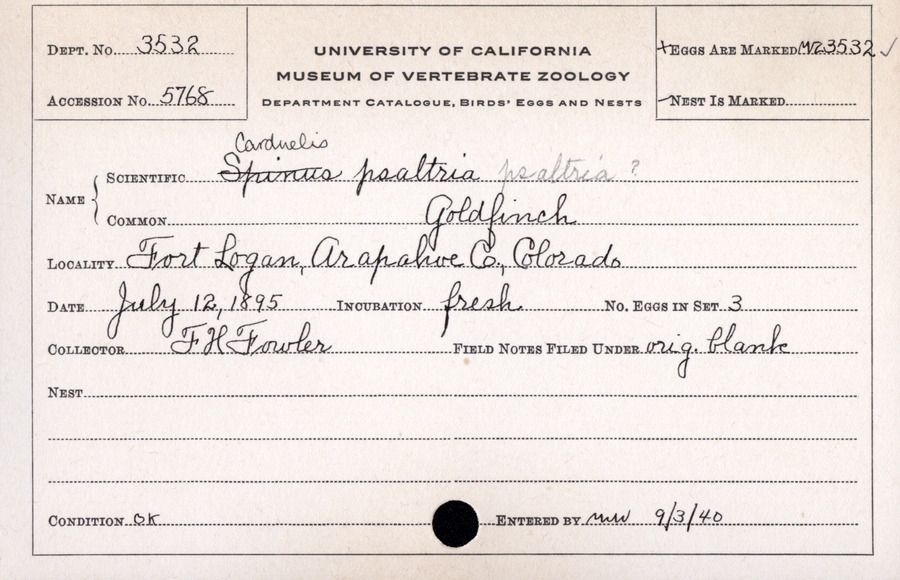 DEPT. NO. 3532
ACCESSION NO. 5768
UNIVERSITY OF CALIFORNIA
MUSEUM OF VERTEBRATE ZOOLOGY
DEPARTMENT CATALOGUE, BIRDS' EGGS AND NESTS
+EGGS ARE MARKED MVZ3532 ✓
NEST IS MARKED
Carduelis
NAME { SCIENTIFIC Spinus psaltria psaltria ?
COMMON Goldfinch
LOCALITY Fort Logan, Arapahoe Co., Colorado
DATE July 12, 1895 INCUBATION fresh NO. EGGS IN SET 3
COLLECTOR F H Fowler FIELD NOTES FILED UNDER orig. blank
NEST
CONDITION OK ENTERED BY mw 9/3/40